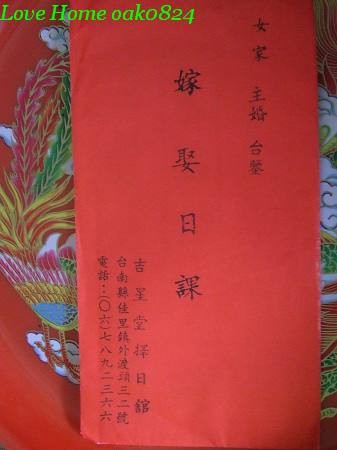 Love Home oak0824
女家 主婚 台鑒
嫁娶日課
吉星堂擇日舘
台南縣佳里鎮外渡頭三二號
電話：（〇六）七八九二三六六